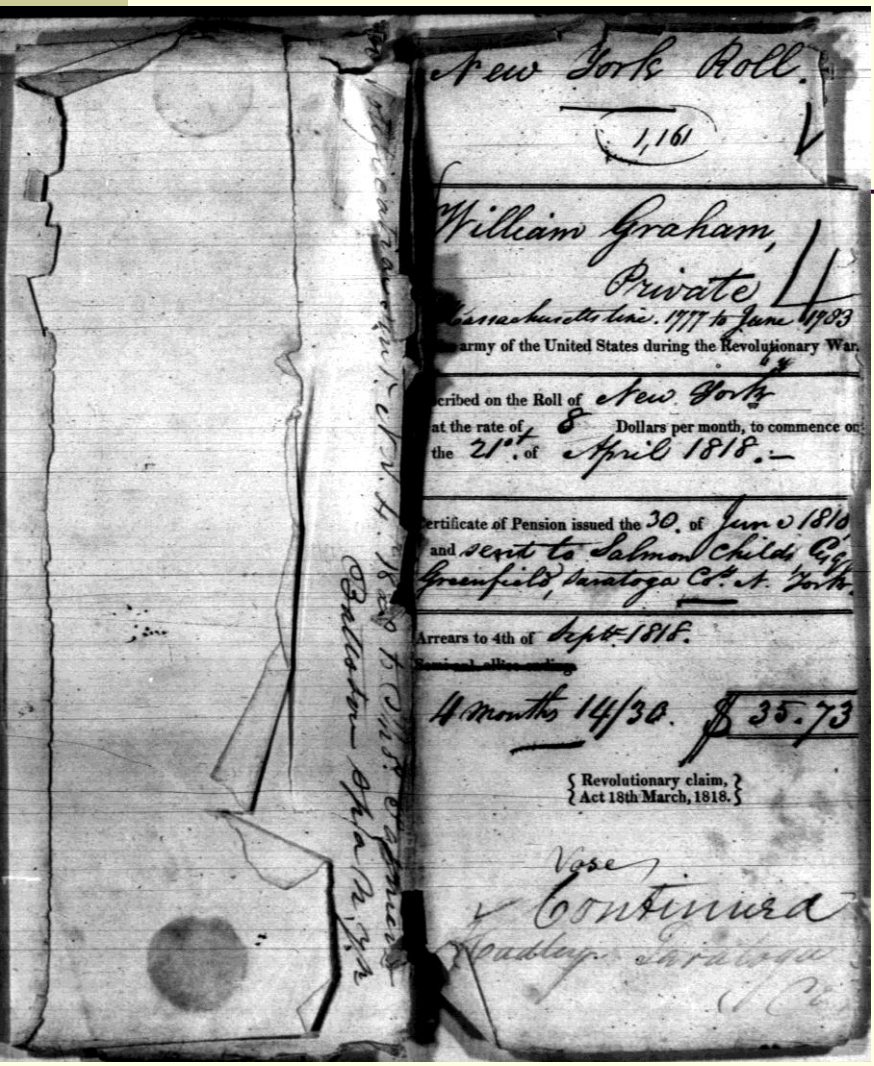 New York Roll.
1,161
William Graham,
Private
Massachusetts line. 1777 to June 1783
army of the United States during the Revolutionary War.
cribed on the Roll of New York
at the rate of 8 Dollars per month, to commence on
the 21st. of April 1818.
ertificate of Pension issued the 30. of June
and sent to Salmon Child,
Greenfield, Saratoga Co. N. York.
Arrears to 4th of Sept. 1818.
4 months 14/30. $ 35.73
Revolutionary claim,
Act 18th March, 1818.
Vose
Continued
Hadley Saratoga
Co
Ballston Spa N. Y.